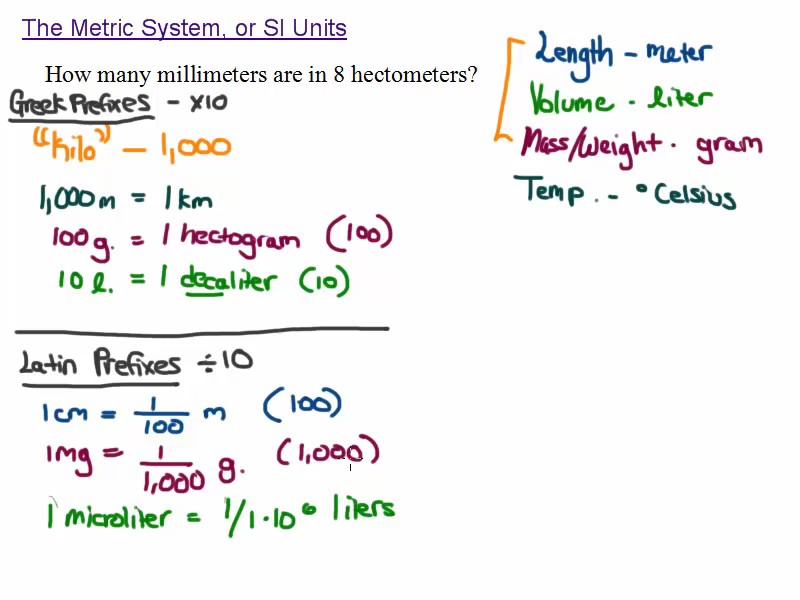 The Metric System, or SI Units
How many millimeters are in 8 hectometers?
Greek Prefixes - x10
"kilo" - 1,000
1,000 m = 1 km
100 g. = 1 hectogram (100)
10 l. = 1 decaliter (10)
Latin Prefixes ÷10
1 cm = 1/100 m (100)
1 mg = 1/1,000 g. (1,000)
1 microliter = 1/1·10⁶ liters
Length - meter
Volume - liter
Mass/Weight · gram
Temp. - °Celsius